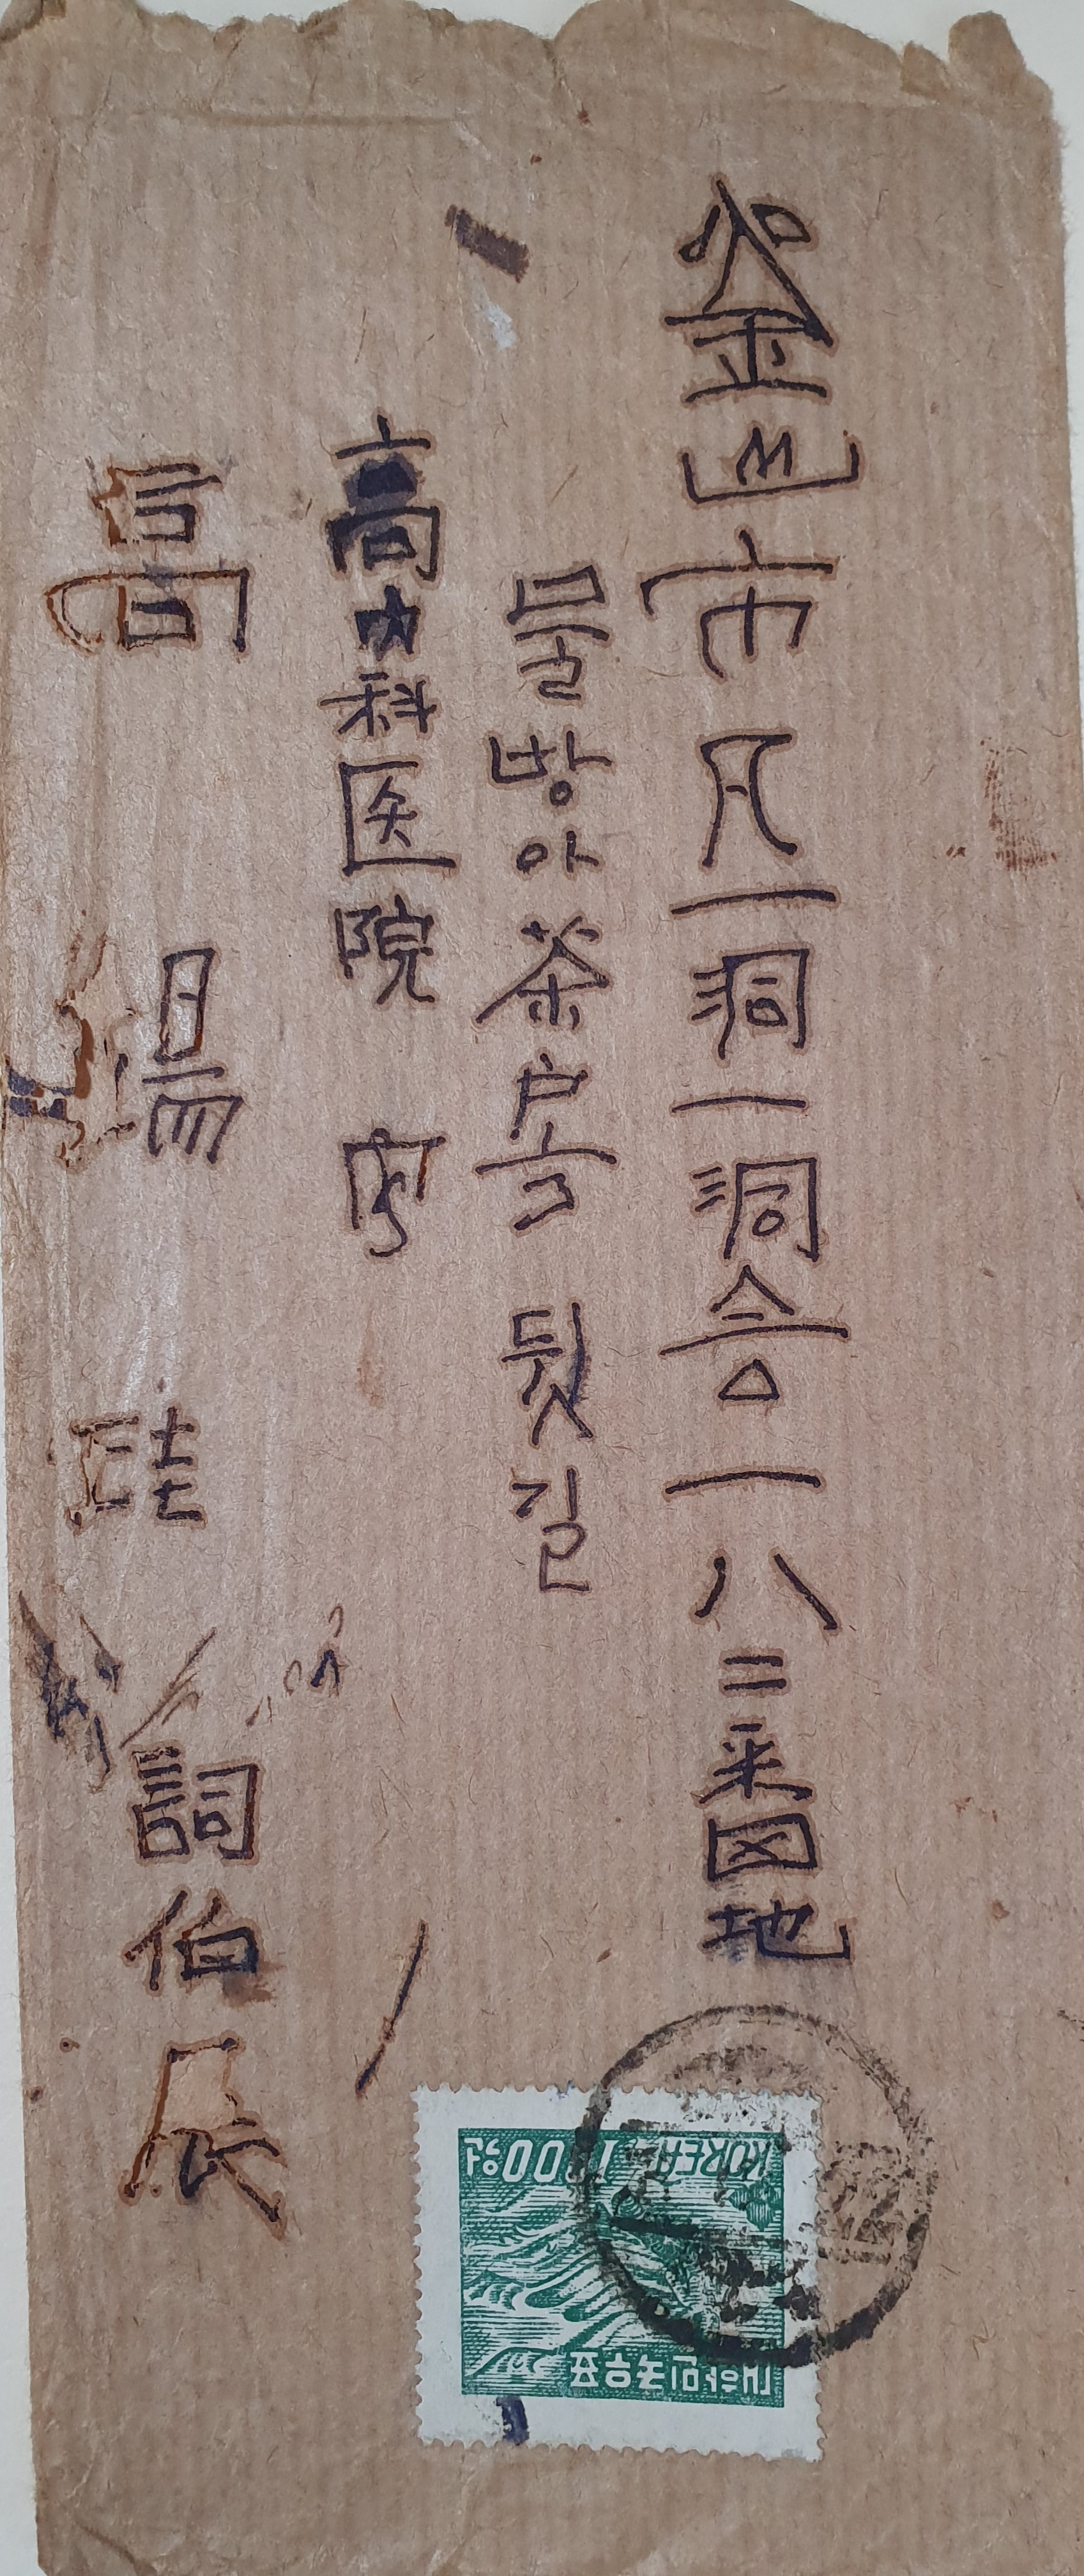 釜山市凡一洞一洞会一八二番地
물방아茶房 뒷길
高内科医院 内
高 錫 珪 詞伯 展
대한민국우표
KOREA 1000원